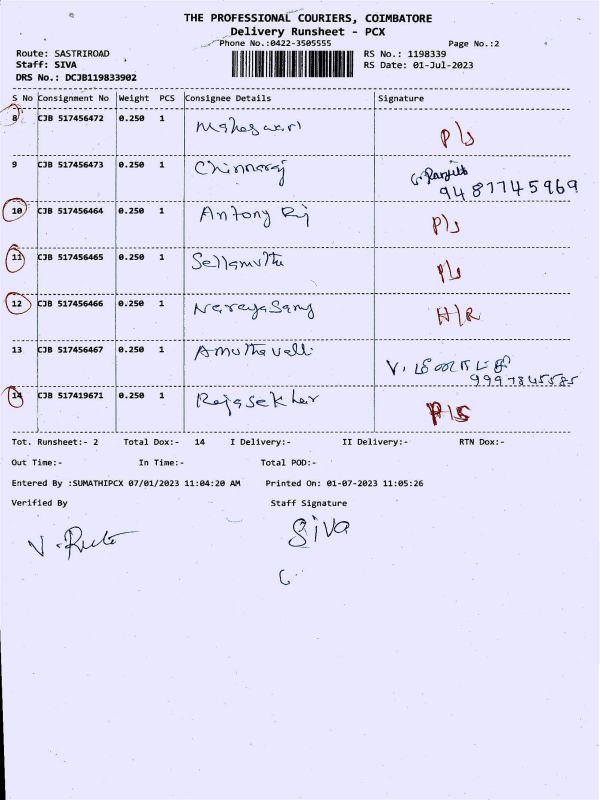 THE PROFESSIONAL COURIERS, COIMBATORE
Delivery Runsheet - PCX
Phone No.:0422-3505555 Page No.:2
Route: SASTRIROAD RS No.: 1198339
Staff: SIVA RS Date: 01-Jul-2023
DRS No.: DCJB119833902
S No Consignment No Weight PCS Consignee Details Signature
8 CJB 517456472 0.250 1 Maheswari P/S
9 CJB 517456473 0.250 1 Chinnaraj G. Ranjith
9487745969
10 CJB 517456464 0.250 1 Antony Raj P/S
11 CJB 517456465 0.250 1 Sellamuthu P/S
12 CJB 517456466 0.250 1 Narayasamy A/R
13 CJB 517456467 0.250 1 Amuthavalli V. மீனாட்சி
14 CJB 517419671 0.250 1 Rajasekhar P/S
Tot. Runsheet:- 2 Total Dox:- 14 I Delivery:- II Delivery:- RTN Dox:-
Out Time:- In Time:- Total POD:-
Entered By :SUMATHIPCX 07/01/2023 11:04:20 AM Printed On: 01-07-2023 11:05:26
Verified By Staff Signature
Siva